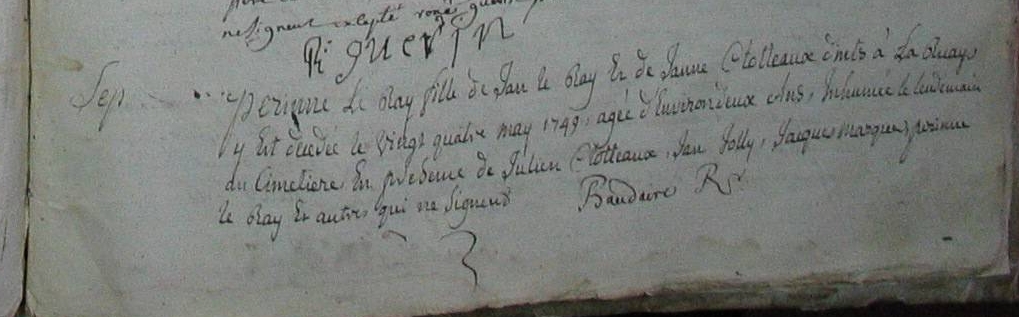 ne signent excepté
Riguevin
Sep. perinne Le Ray fille de Jan le Ray Et de Janne Clolleaux d'nts à La
y Est décedée le vingt quatre may 1749. agée d'Environ deux Ans, Inhumée le lendemain
au Cimetiere, En présence de Julien Clolleaux, Jan Jolly, Jacques perinne
le Ray Et autres qui ne signent Baudaire Rr